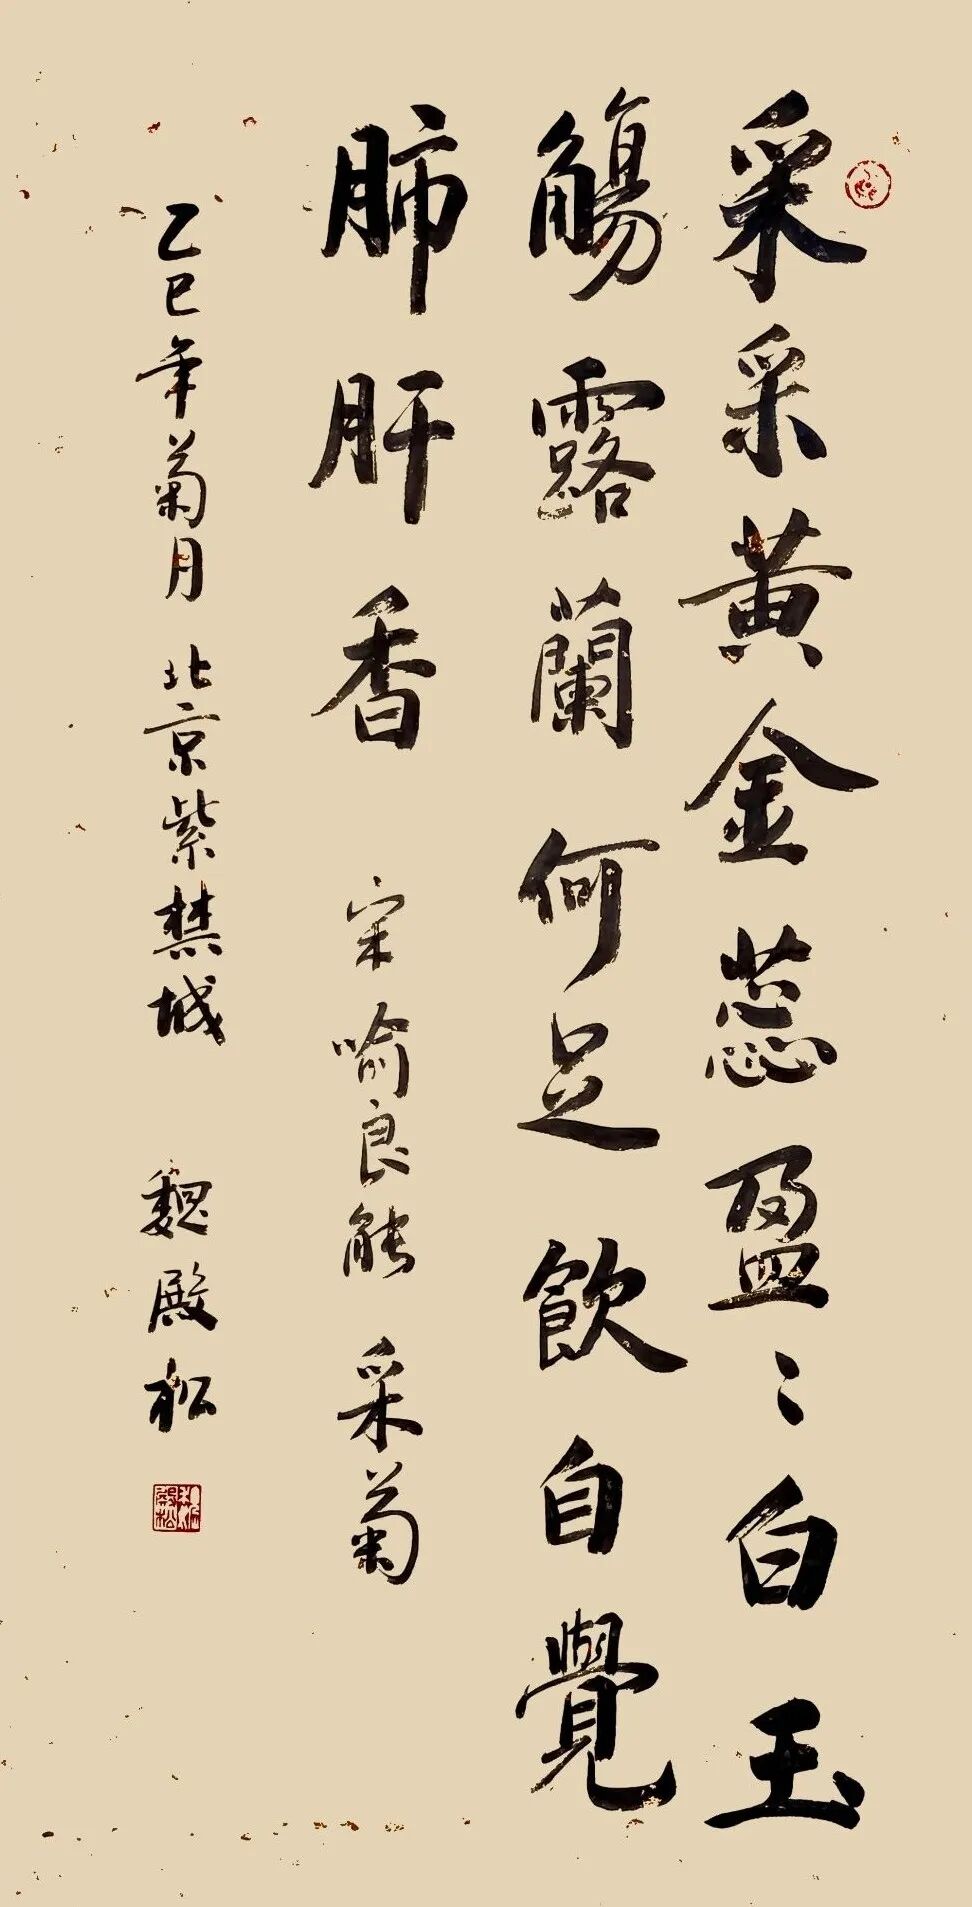 采采黄金蕊盈〻白玉
觴露蘭何足飲自覺
肺肝香 宋喻良能 采菊
乙巳年菊月 北京紫禁城 魏殿松